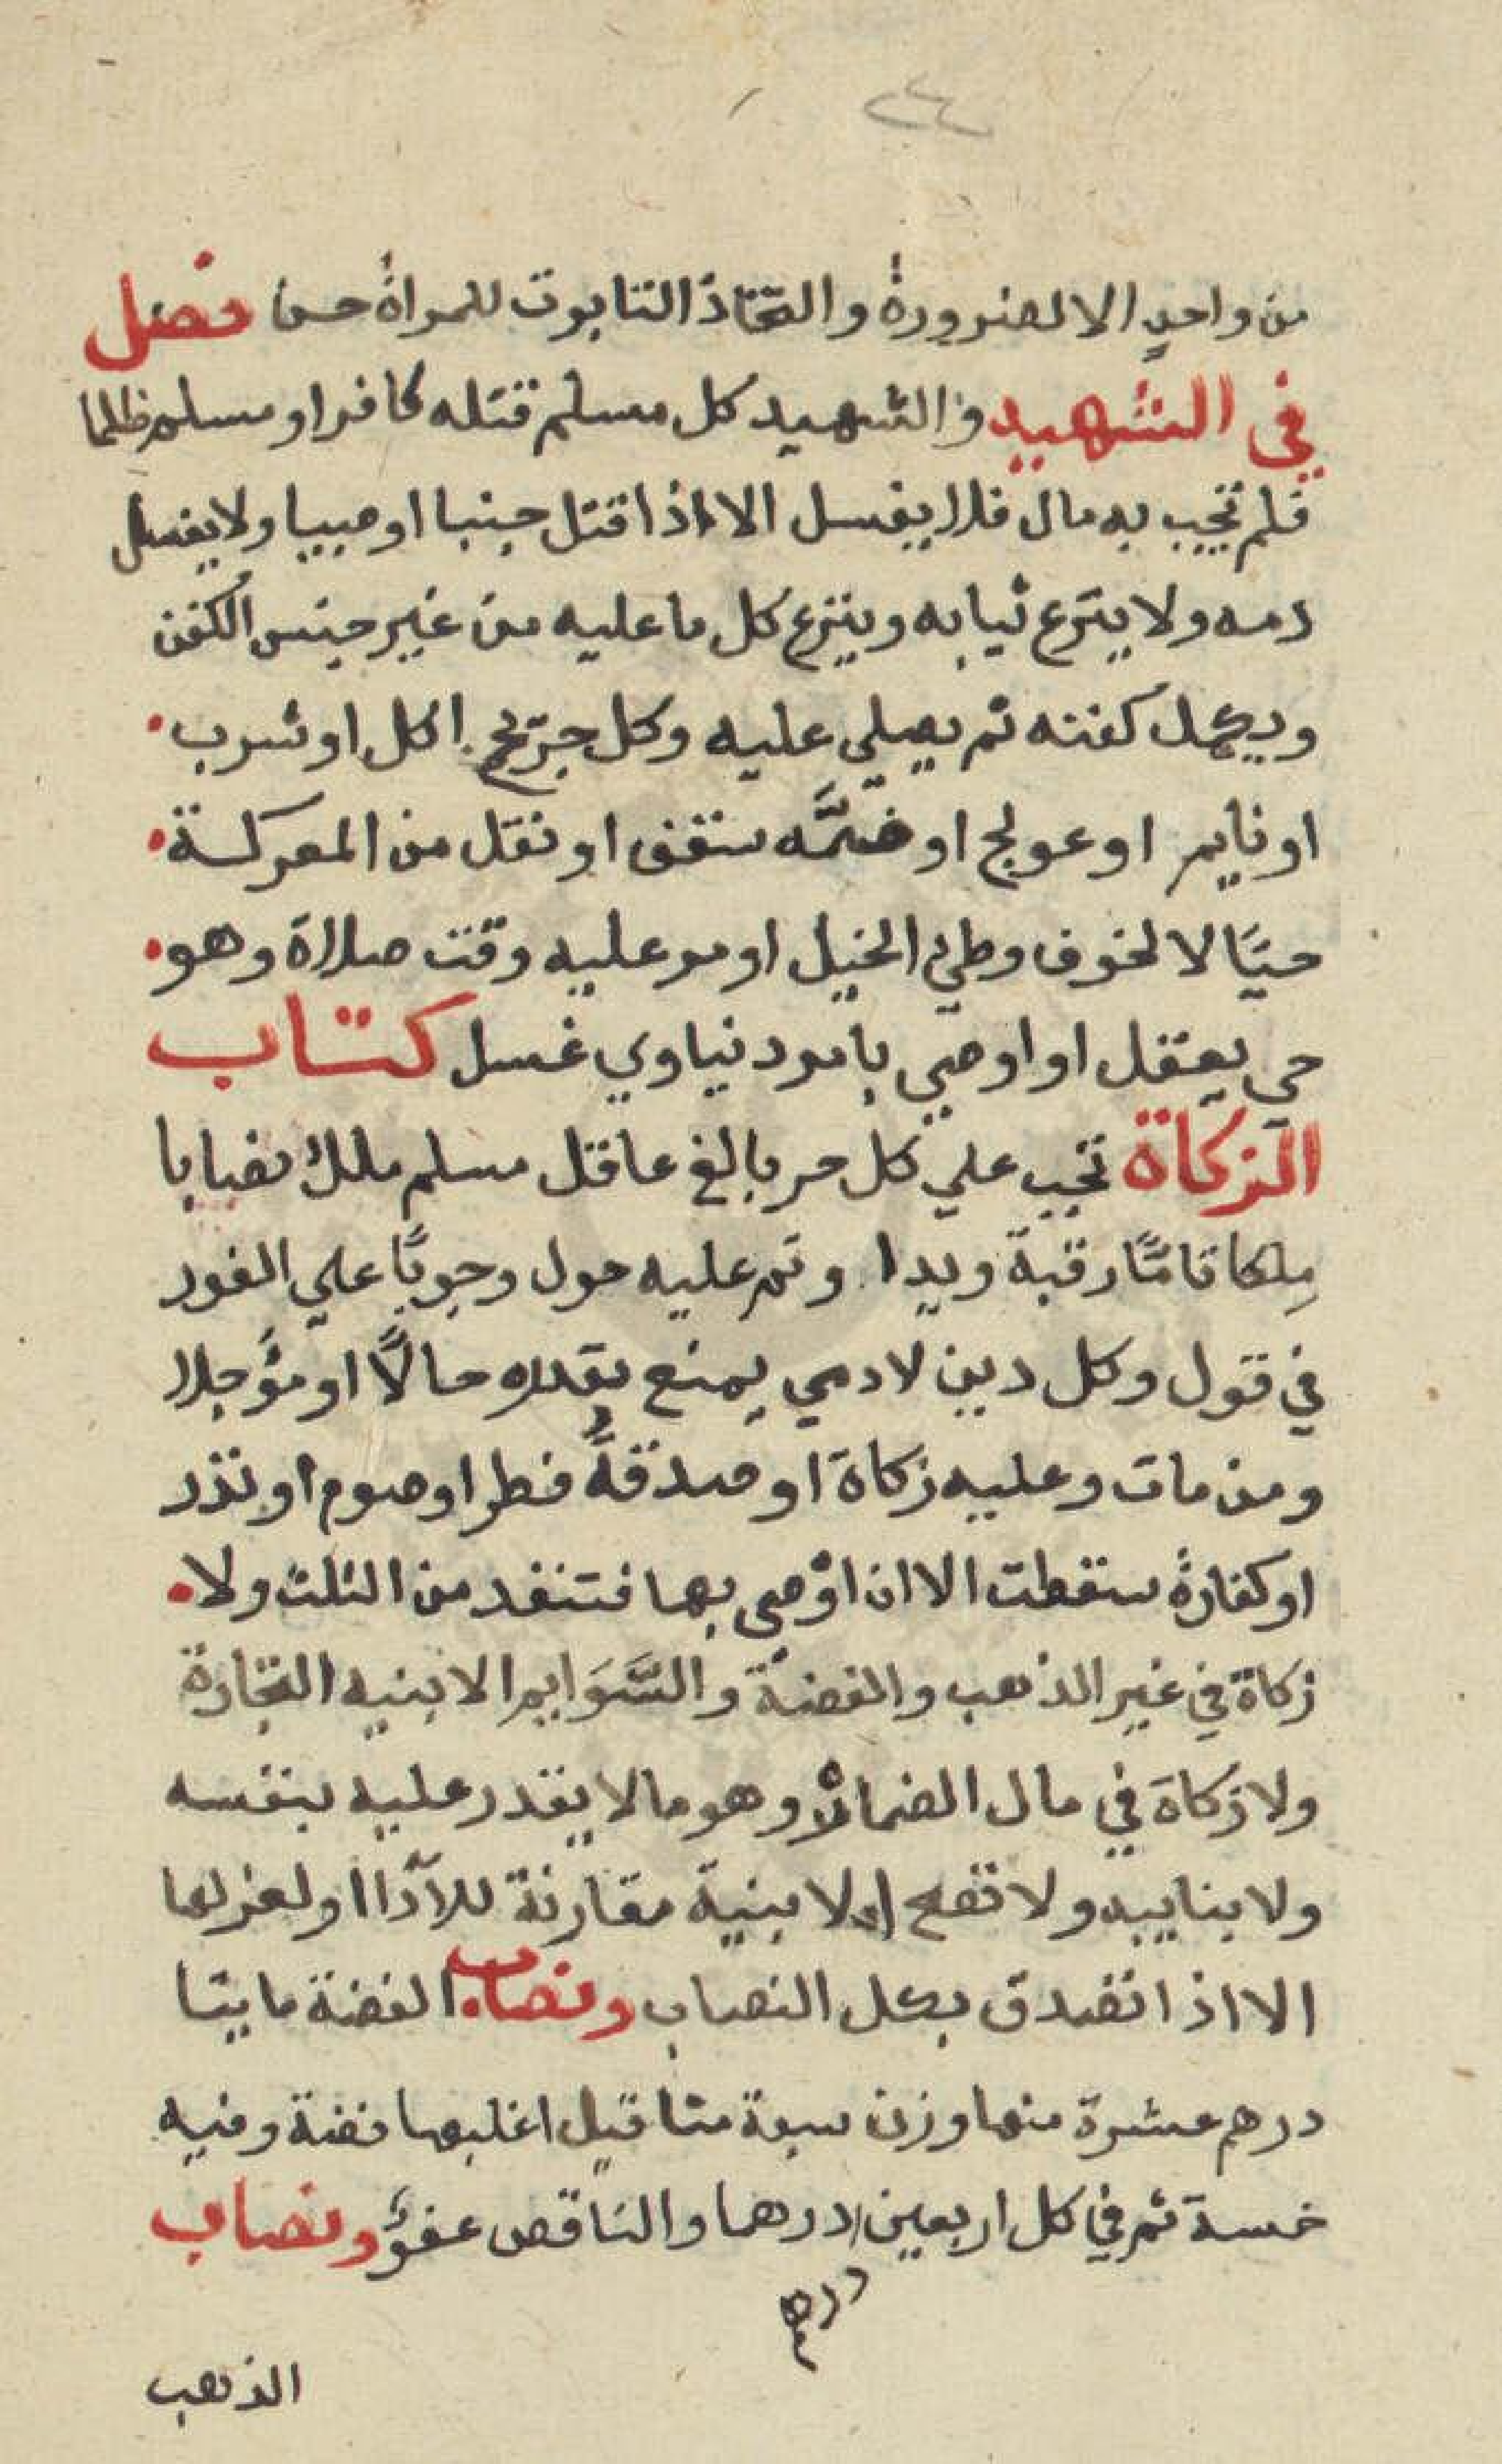 ٢٤
من واحد الا لضرورة والتخاذ التابوت للمراة حسن فصل
في الشهيد والشهيد كل مسلم قتله كافر او مسلم ظلما
فلم تجب به مال فلا يغسل الا اذا قتل جنبا او صبيا ولا يغسل
دمه ولا ينزع ثيابه وينزع كل ما عليه من غير جنس الكفن
ويكمل كفنه ثم يصلي عليه وكل جريح اكل او شرب
او نايم او عولج او ضمَّه سقف او نقل من المعركة
حيَّا لا لخوف وطي الخيل او مر عليه وقت صلاة وهو
حي يعقل او اوصي بامر دنياوي غسل كتاب
الزكاة تجب علي كل حر بالغ عاقل مسلم ملك نصابا
مِلكا تامًّا رقبة ويدا وتم عليه حول وجوبًا علي الفور
في قول وكل دين لادمي يمنع بقدره حالًا او مؤَجلا
ومن مات وعليه زكاة او صدقة فطر او صوم او نذر
او كفارة سقطت الا ان اوصي بها فتنفد من الثلث ولا
زكاة في غير الذهب والفضة والسَّوَايم الا بنيه التجارة
ولا زكاة في مال الضمار وهو ما لا يقدر عليه بنفسه
ولا بنايبه ولا تصح الا بنية مقارنة للآدا او لعزلها
الا اذا تصدق بكل النصاب ونصاب الفضة مايتا
درهم عشرة منها وزن سبعة مثاقيل اغلبها فضة وفيه
خمسة ثم في كل اربعين درهما والناقص عفوٌ ونصاب
الذهب